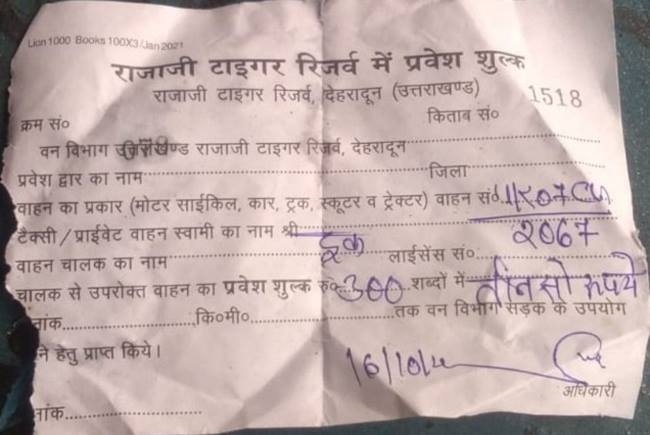 Lion 1000 Books 100X3/Jan 2021
राजाजी टाइगर रिजर्व में प्रवेश शुल्क
राजाजी टाइगर रिजर्व, देहरादून (उत्तराखण्ड)
1518
क्रम सं०
किताब सं०
वन विभाग उत्तराखण्ड राजाजी टाइगर रिजर्व, देहरादून
प्रवेश द्वार का नाम जिला
वाहन का प्रकार (मोटर साईकिल, कार, ट्रक, स्कूटर व ट्रेक्टर) वाहन सं०
टैक्सी / प्राईवेट वाहन स्वामी का नाम श्री 2067
वाहन चालक का नाम ट्रक लाईसेंस सं०
चालक से उपरोक्त वाहन का प्रवेश शुल्क रु० 300 शब्दों में तीन सो रूपये
तांक कि०मी० तक वन विभाग सड़क के उपयोग
ने हेतु प्राप्त किये।
16/10/
अधिकारी
नांक